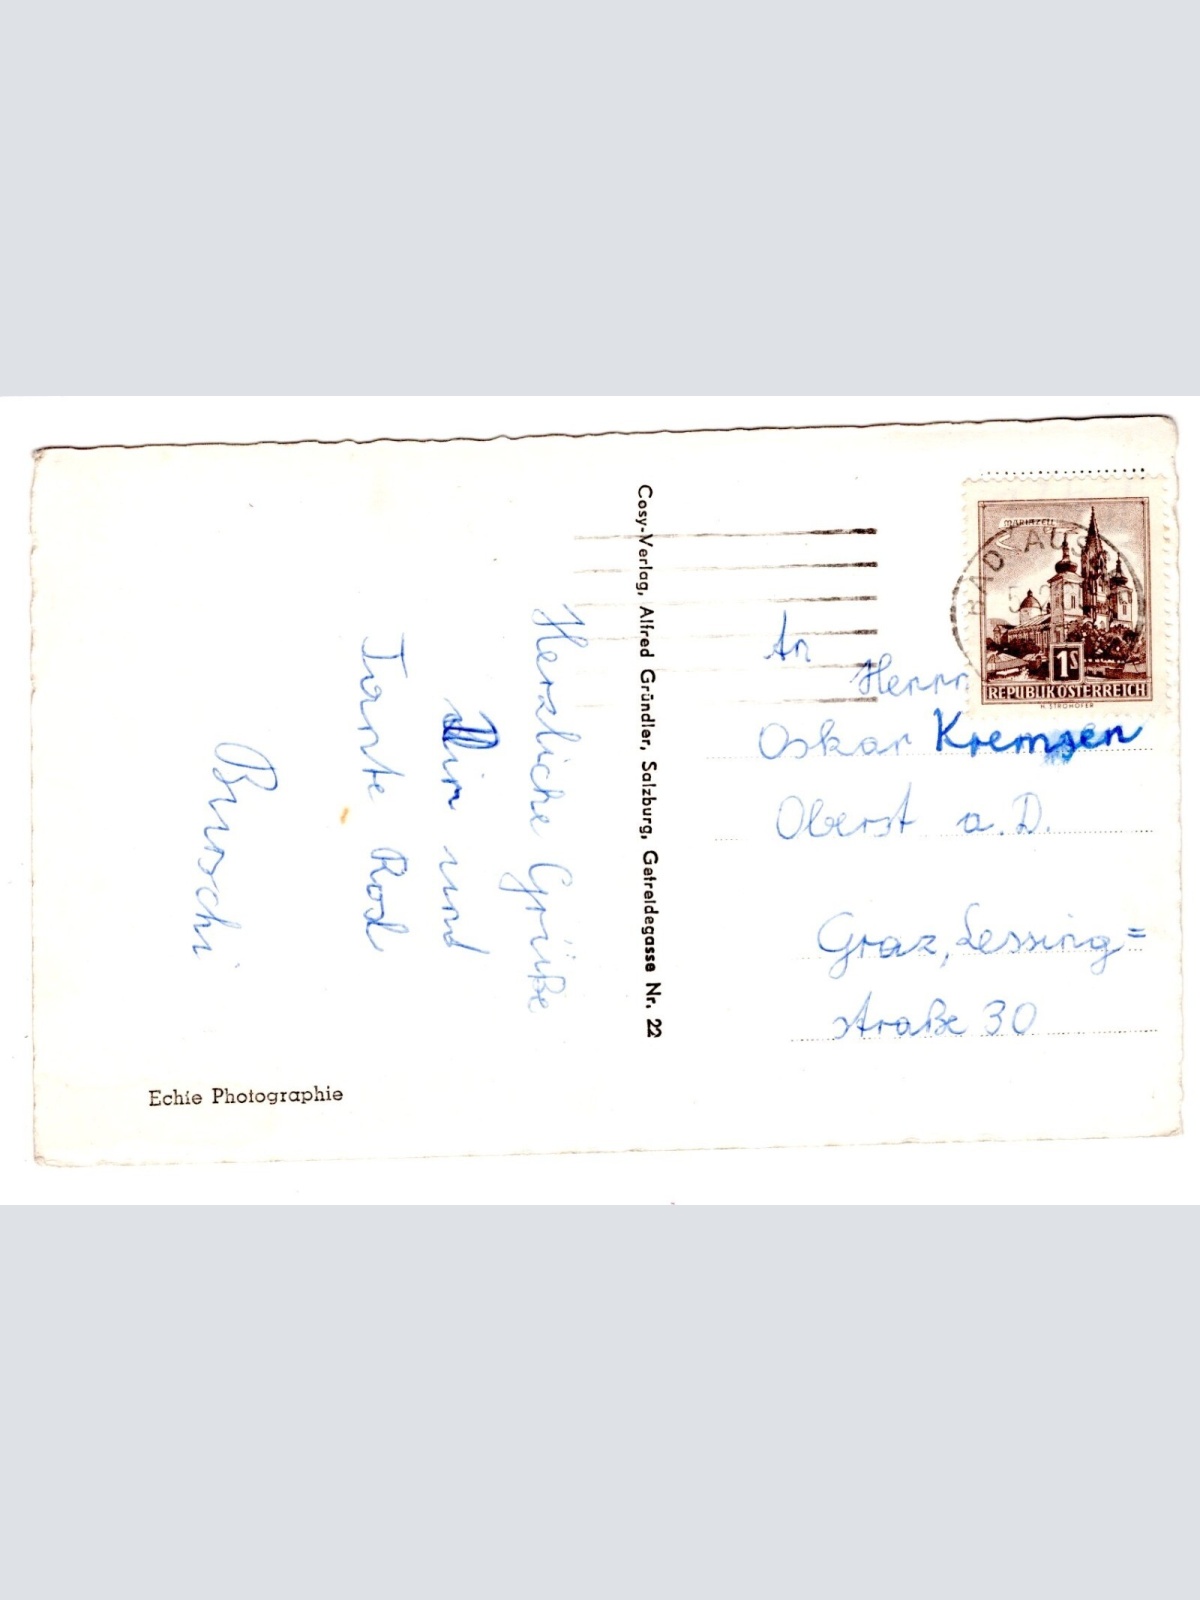 Herzliche Grüße
Dir und
Tante Rosl
Burschi
Echte Photographie
Cosy-Verlag, Alfred Gründler, Salzburg, Getreidegasse Nr. 22
MARIAZELL
BAD AUS
1S
REPUBLIK ÖSTERREICH
H. STROHOFER
An
Herrn
Oskar Kremsen
Oberst a. D.
Graz, Lessing=
straße 30